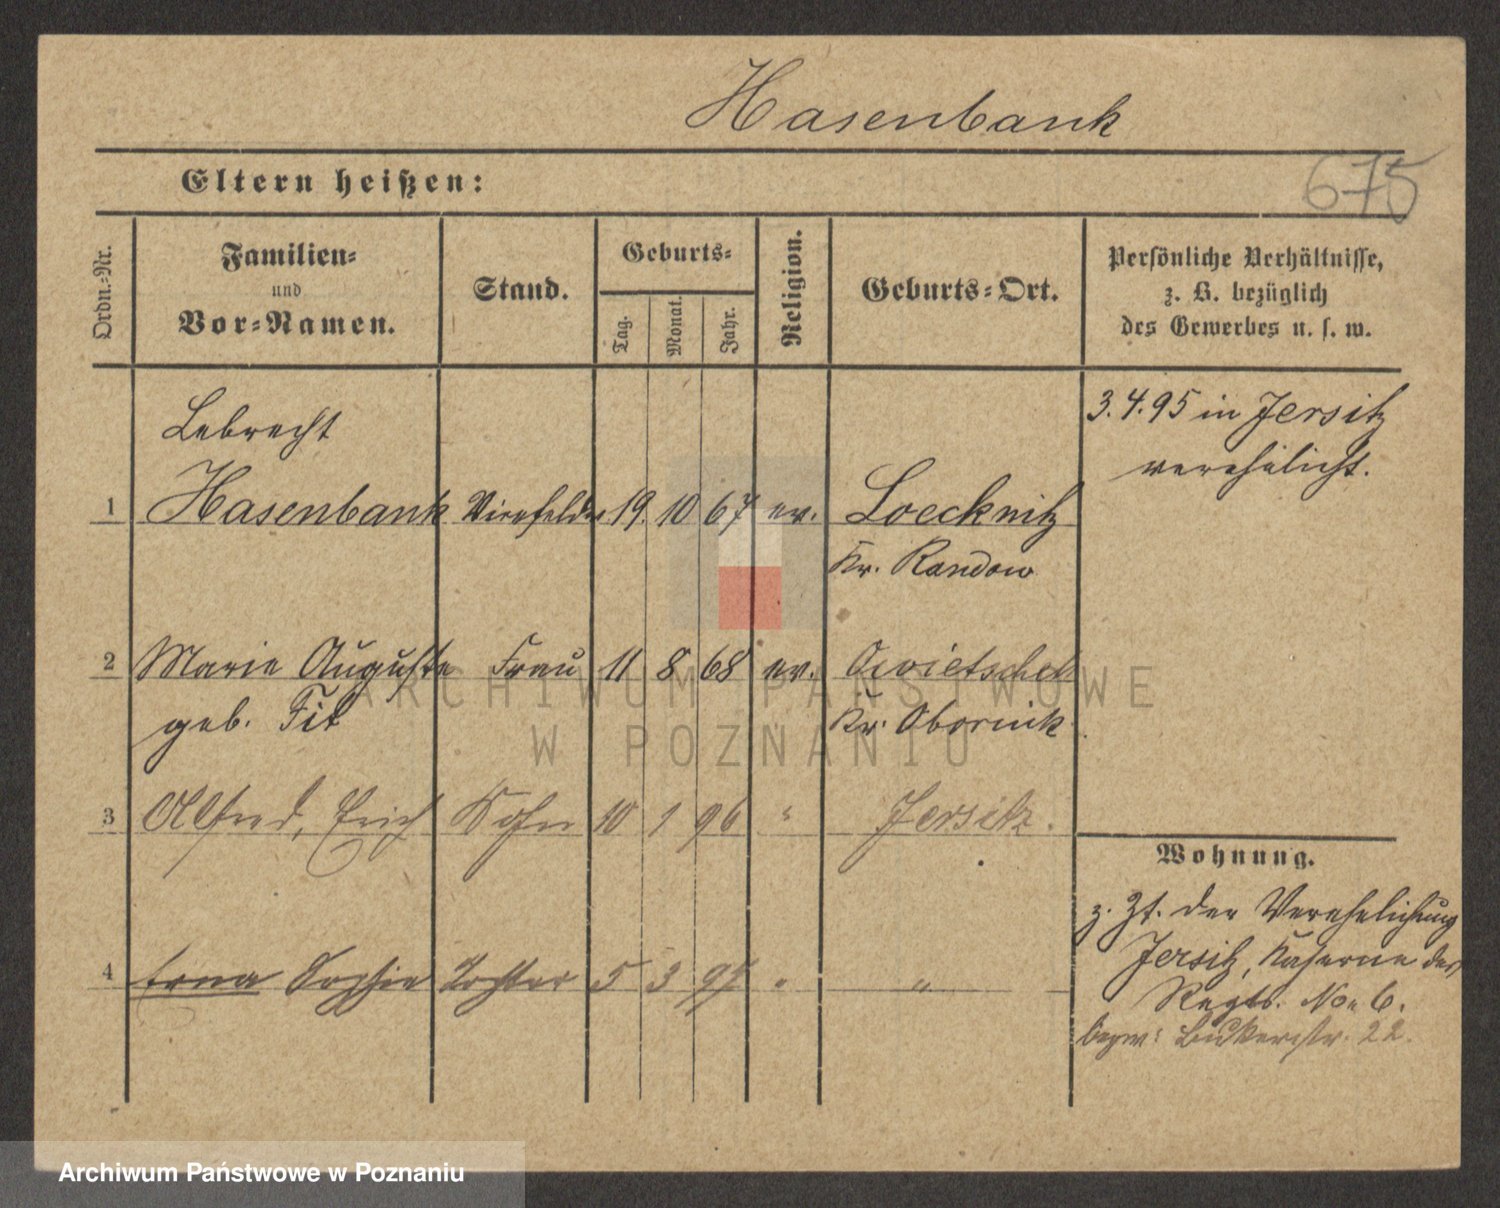 Hasenbank
675
Eltern heißen:
Ordn.-Nr.
Familien-
und
Vor-Namen.
Stand.
Geburts-
Tag.
Monat.
Jahr.
Religion.
Geburts-Ort.
Persönliche Verhältnisse,
z. B. bezüglich
des Gewerbes u. s. w.
Lebrecht
1 Hasenbank 19. 10 67 ev. Loecknitz
Kr. Randow
3. 4. 95 in Jersitz
verehelicht.
2 Marie Auguste Frau 11 8 68 ev.
geb.
Kr. Obornik
3 Alfred, Erich Sohn 10 1 96 " Jersitz.
4 Erna Sophie Tochter 5 3 97 " "
Wohnung.
z. Zt. der Verehelichung
Jersitz, Kaserne des
Regts. No. 6.
bezw: Bukerstr. 22.
ARCHIWUM PAŃSTWOWE
W POZNANIU
Archiwum Państwowe w Poznaniu